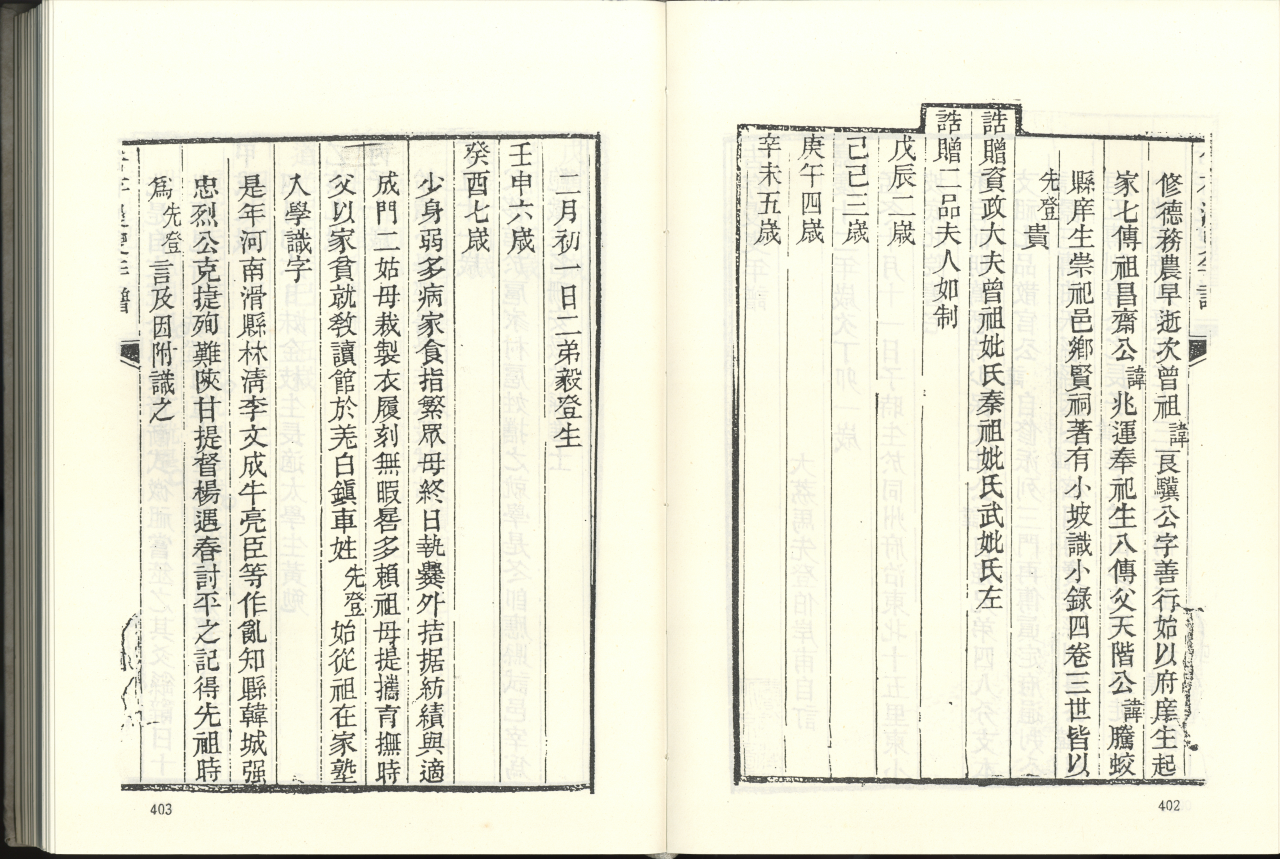 修德務農早逝次曾祖諱艮驥公字善行始以府庠生起
家七傳祖昌齋公諱兆運奉祀生八傳父天階公諱騰蛟
縣庠生崇祀邑鄉賢祠著有小坡識小錄四卷三世皆以
先登貴
誥贈資政大夫曾祖妣氏秦祖妣氏武妣氏左
誥贈二品夫人如制
戊辰二歲
己巳三歲
庚午四歲
辛未五歲
402
二月初一日二弟毅登生
壬申六歲
癸酉七歲
少身弱多病家食指繁眾母終日執爨外拮据紡績與適
成門二姑母裁製衣履刻無暇晷多賴祖母提攜育撫時
父以家貧就敎讀館於羌白鎭車姓先登始從祖在家塾
入學識字
是年河南滑縣林淸李文成牛亮臣等作亂知縣韓城强
忠烈公克捷殉難陝甘提督楊遇春討平之記得先祖時
爲先登言及因附識之
403